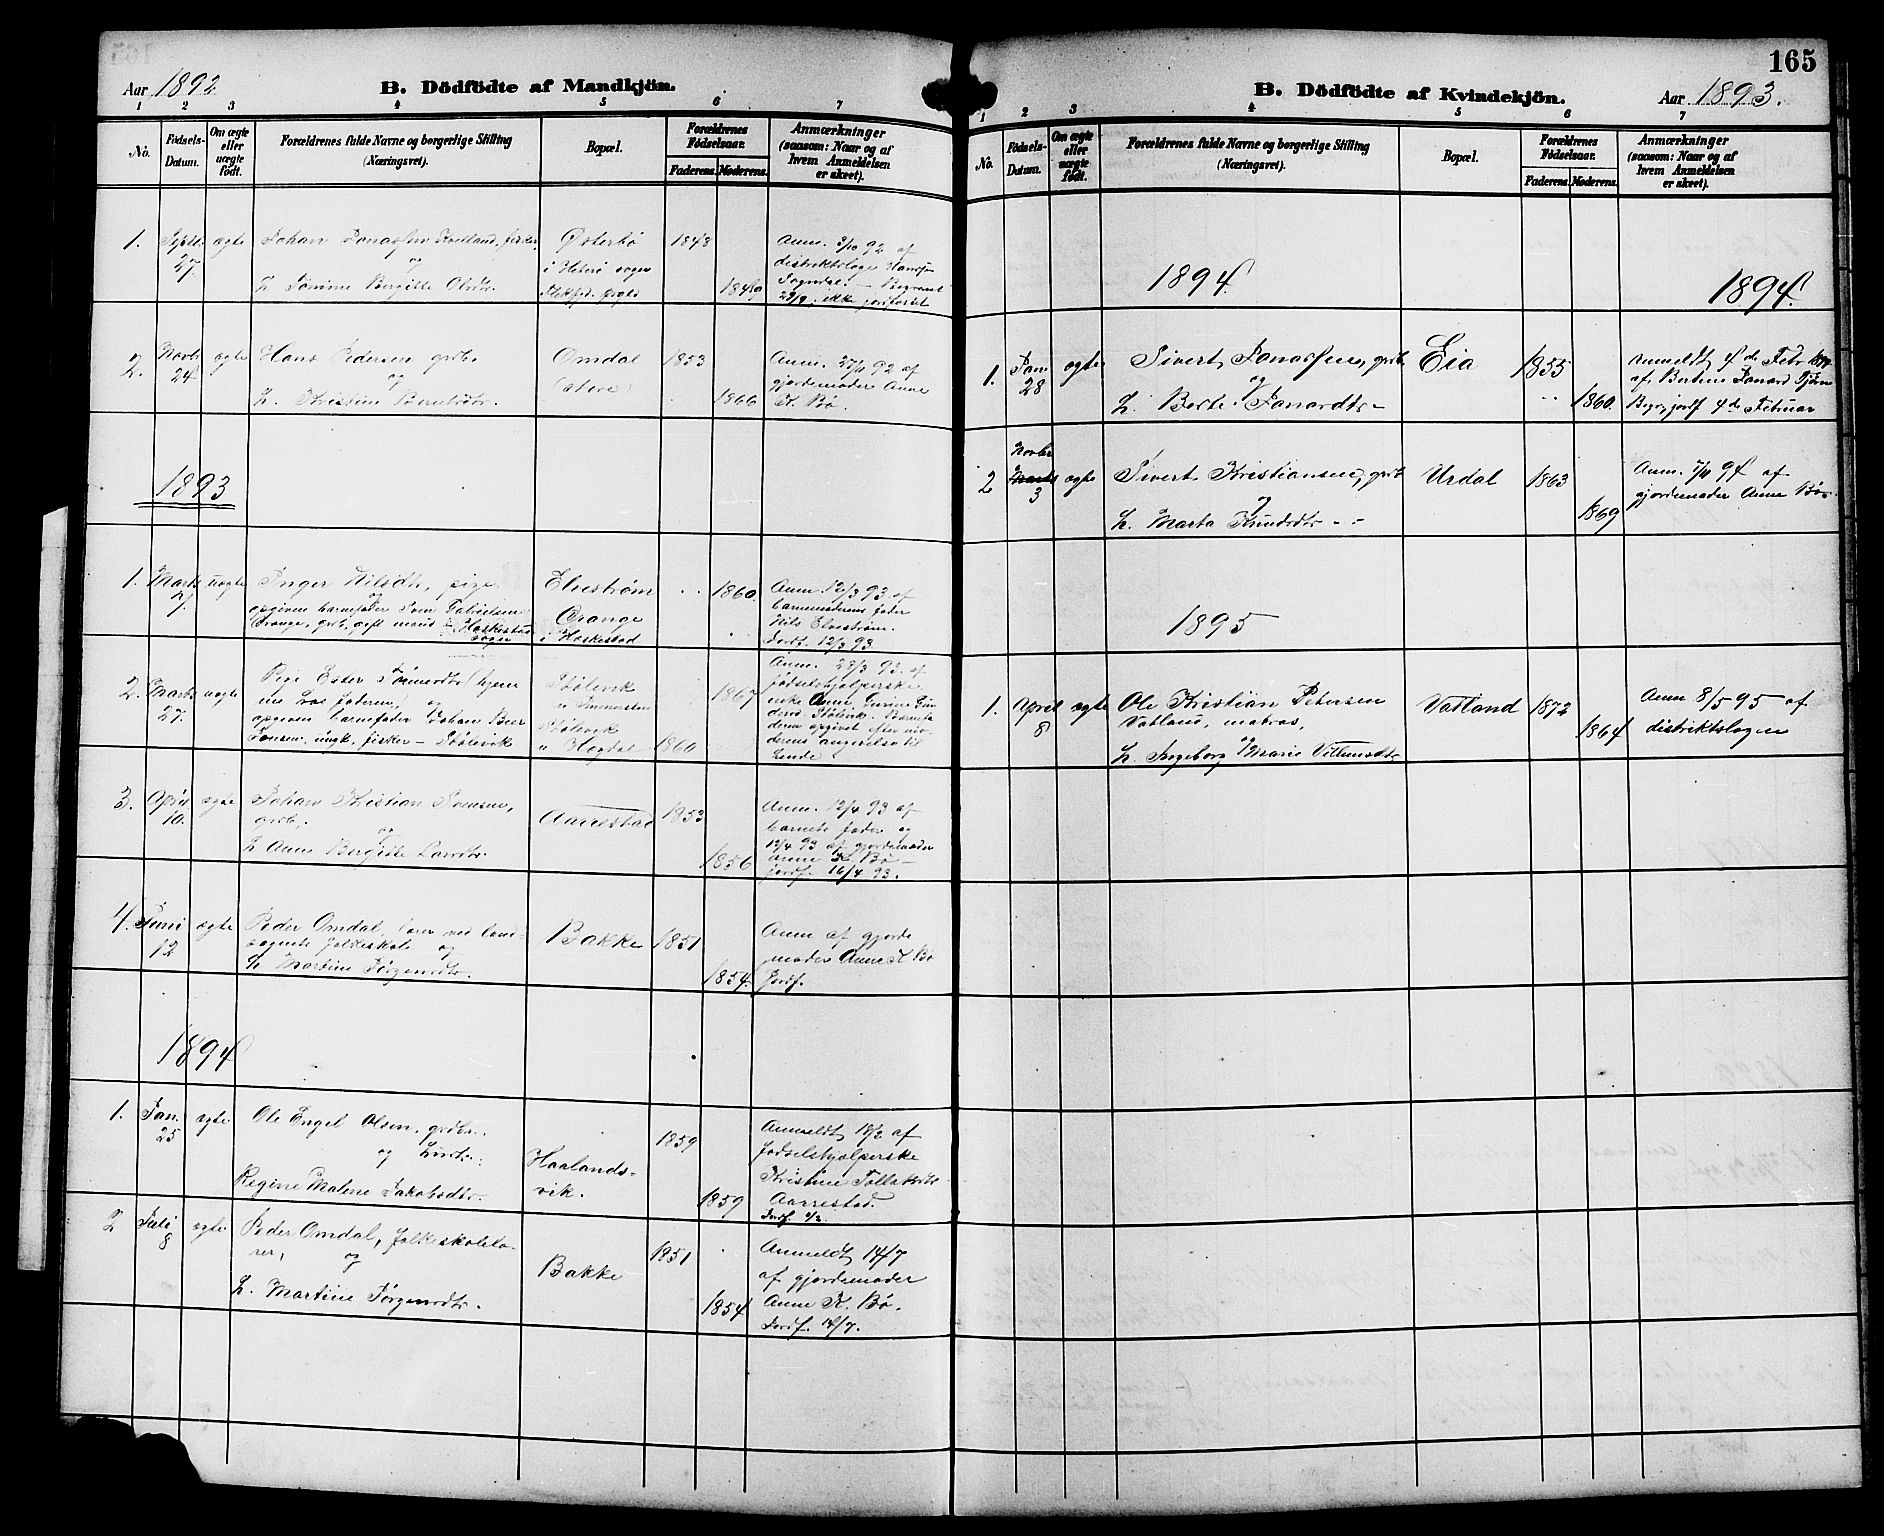 Aar 1892
B. Dödfödte af Mandkjön.
1 2 3 4 5 6 7
No.
Födsels-Datum.
Om ægte eller uægte födt.
Forældrenes fulde Navne og borgerlige Stilling (Næringsvei).
Bopæl.
Forældrenes Födselsaar.
Faderens. Moderens.
Anmærkninger (saasom: Naar og af hvem Anmeldelsen er skeet).
1. Septbr. 27. ægte
Johan Jonassen fisker,
og
h. Bergitte Olsdtr.
Østerbø
i Heterø sogn
1848
1849
Anm. 3/10 92 af
distriktslæge
Sogndal. — Begravet
29/9, ikke jordfæstet
2. Novbr 24 ægte
Hans Pedersen grdb.
og
h. Kristine Berntsdtr.
Omdal
(store)
1853
1866
af
gjordemoder Anne
K. Bø.
1893
1. Marts 7. uægte
Inger Nilsdtr, pige
og
opgiven barnefader
Orange, grdb, gift mand - Heskestad
sogn
Elvestrøm
Orange
i Heskestad
1860.
Anm. 12/3 93 af
barnemoderens fader
Nils Elvestrøm.
Jordf. 12/3 93
2. Marts 27. uægte
Pige Ester hjemme
hos faderen, og
opgiven barnefader Johan
ungk. fisker - Stølevik
Stølevik
Stølevik
1867
1860
Anm. 28/3 93. af
fødselshjælperske
enke Anne
Stølevik. Barnefaderen
opgivet efter moderens
angivelse til
Lende.
3. April 10. ægte
Johan Kristian
grdb,
og
h Anne Bergitte
Aarrestad
1853
1856
Anm. 12/4 93 af
barnets fader og
af gjordemoder
Anne K. Bø -
jordf. 16/4 93.
4. Juni 12 ægte
Peder Omdal, lærer ved land-
sognets folkeskole og
h. Martine Jørgensdtr.
Bakke
1851
1854
Anm af gjorde
moder Anne K Bø
Jordf.
1894
1. Jan. 25 ægte
Ole Engel Olsen, grdbr.
og hustr.
Regine Malene Jakobsdtr.
Haalands-
vik.
1859
1859
Anmeldt af
fødselshjælperske
Kristine
Aarrestad.
Jordf.
2 Juli 8 ægte
Peder Omdal, folkeskolelæ-
rer,
og
h. Martine Jørgensdtr.
Bakke
1851
1854
Anmeldt 14/7
af gjordemoder
Anne K. Bø.
Jordf.
165
B. Dödfödte af Kvindekjön.
Aar 1893.
1 2 3 4 5 6 7
No.
Födsels-Datum.
Om ægte eller uægte födt.
Forældrenes fulde Navne og borgerlige Stilling (Næringsvei).
Bopæl.
Forældrenes Födselsaar.
Faderens. Moderens.
Anmærkninger (saasom: Naar og af hvem Anmeldelsen er skeet).
1894 1894
1. Jan 28 ægte
Sivert Jonassen, grdb
og
h. Berte Janardtr -
Eia
1855
1860.
anmeldt 4de Febr
af
4de Februar
2 Novbr 3 ægte
Sivert Kristiansen, grdb
og
h. Marta Knudsdtr
Urdal
1863
1869
Anm. af
gjordemoder Anne Bø
1895
1. April 8 ægte
Ole Kristian Petersen
Vatland, matros,
og
h. Ingeborg Marie
Vatland
1872
1864
Anm 8/5 95 af
distriktslægen